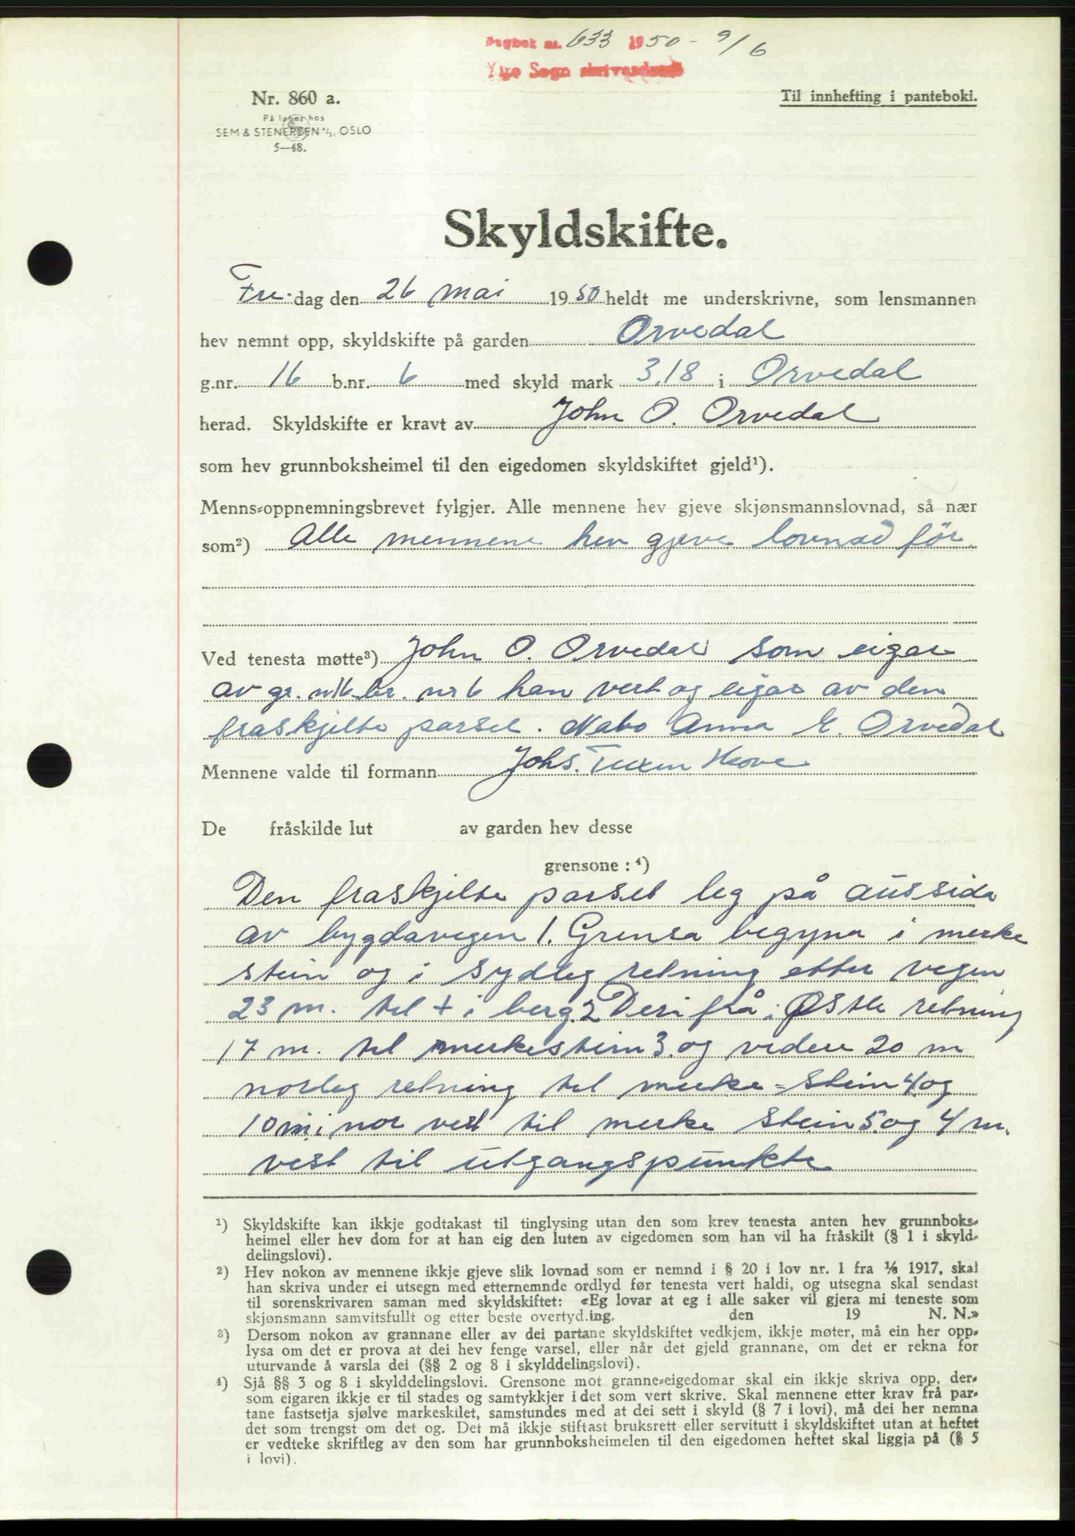 Dagbok nr. 633 1950 - 9/6
Ytre Sogn skrivardøme
Nr. 860 a.
Til innhefting i panteboki.
På lager hos
SEM & STENERSEN A/S, OSLO
5—48.
Skyldskifte.
Fre dag den 26 mai 1950 heldt me underskrivne, som lensmannen
hev nemnt opp, skyldskifte på garden Orvedal
g.nr. 16 b.nr. 6 med skyld mark 3,18 i Orvedal
herad. Skyldskifte er kravt av John O. Orvedal
som hev grunnboksheimel til den eigedomen skyldskiftet gjeld¹).
Menns-oppnemningsbrevet fylgjer. Alle mennene hev gjeve skjønsmannslovnad, så nær
som²) Alle mennene hev gjeve lovnad før
Ved tenesta møtte³) John O. Orvedal som eigar
av gr. nr 16 br. nr 6 han vert og eigar av den
fraskjelte parsel. Nabo Anna E. Orvedal
Mennene valde til formann Johs. Hove
De fråskilde lut av garden hev desse
grensone : ⁴)
Den fraskjelte parsel leg på aussida
av bygdavegen 1. Grensa begyna i merke
stein og i sydleg retning etter vegen
23 m. til + i berg 2 Derifrå i Østle retning
17 m. til merkestein 3. og videre 20 m
norleg retning til merke-stein 4. og
10 m i nor vest til merke stein 5. og 4 m.
vest til utgangspunkte
¹) Skyldskifte kan ikkje godtakast til tinglysing utan den som krev tenesta anten hev grunnboks-
heimel eller hev dom for at han eig den luten av eigedomen som han vil ha fråskilt (§ 1 i skyld-
delingslovi).
²) Hev nokon av mennene ikkje gjeve slik lovnad som er nemnd i § 20 i lov nr. 1 fra 1/6 1917, skal
han skriva under ei utsegn med etternemnde ordlyd før tenesta vert haldi, og utsegna skal sendast
til sorenskrivaren saman med skyldskiftet: «Eg lovar at eg i alle saker vil gjera mi teneste som
skjønsmann samvitsfullt og etter beste overtyding. den 19 N. N.»
³) Dersom nokon av grannane eller av dei partane skyldskiftet vedkjem, ikkje møter, må ein her opp-
lysa om det er prova at dei hev fenge varsel, eller når det gjeld grannane, om det er rekna for
uturvande å varsla dei (§§ 2 og 8 i skylddelingslovi).
⁴) Sjå §§ 3 og 8 i skylddelingslovi. Grensone mot granne-eigedomar skal ein ikkje skriva opp, der-
som eigaren ikkje er til stades og samtykkjer i det som vert skrive. Skal mennene etter krav frå par-
tane fastsetja sjølve markeskilet, samstundes med at dei sett i skyld (§ 7 i lovi), må dei her nemna
det som trengst om det og. Det må ikkje stiftast bruksrett eller servitutt i skyldskiftet utan at heftet
er vedteke skriftleg av den som har grunnboksheimelen til den eigedomen heftet skal liggja på (§ 5
i lovi).